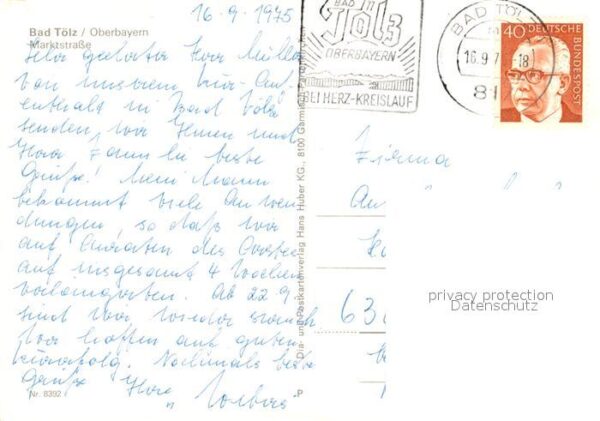 16.9.1975
Bad Tölz / Oberbayern
Marktstraße
Sehr geehrter Herr
Von unserem Kur-Auf-
enthalt in Bad Tölz
senden wir Ihnen und
Ihrer Familie beste
Grüße! Mein Mann
bekommt viele Anwen-
dungen, so daß wir
auf Anraten des Arztes
auf insgesamt 4 Wochen
verlängerten. Ab 22.9.
sind wir wieder
Wir hoffen auf guten
Kurerfolg. Nochmals beste
Grüße Ihre
Nr. 8392
Dia- und Postkartenverlag Hans Huber KG., 8100 Garmisch-Partenkirchen
P
BAD
TÖLZ
OBERBAYERN
BEI HERZ-KREISLAUF
BAD TÖLZ
16.9.7 -18
81
40
DEUTSCHE BUNDESPOST
Firma
An
63
privacy protection
Datenschutz